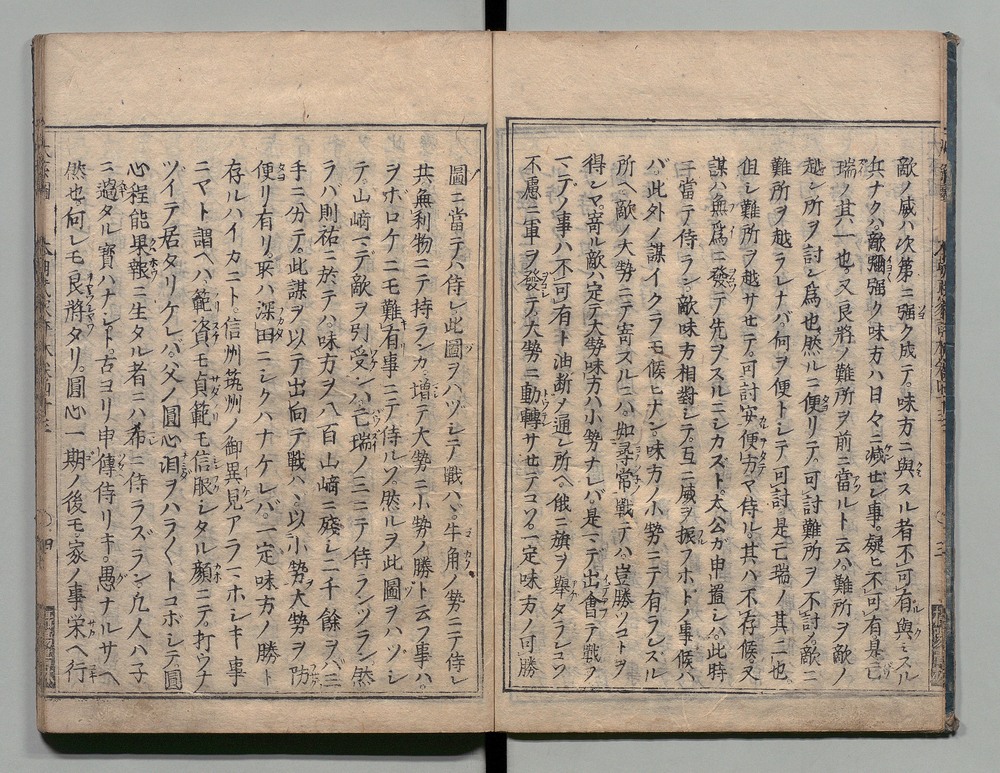 敵ノ威ハ次第ニ強ク成テ。味方ニ與スル者不可有。與ミスル
兵ナクハ。敵彌強ク味方ハ日々ニ減セシ事。疑ヒ不可有。是亡
瑞ノ其一也。又良將ノ難所ヲ前ニ當ルト云ハ。難所ヲ敵ノ
越シ所ヲ討シ爲也。然ルニ便リニテ可討難所ヲ不討。敵ニ
難所ヲ越ラレナバ。何ヲ便トシテ可討。是亡瑞ノ其二也
但シ難所ヲ越サセテ。可討安便方マ侍ル。其ハ不存候。又
謀ハ無爲ニ發テ先ヲスルニシカズト。太公ガ申置シ。此時
ニ當テ侍ラン。敵味方相對シテ。互ニ威ヲ振フホドノ事候ハ
バ。此外ノ謀イクラモ候ヒナン。味方ノ小勢ニテ有ランズル
所ヘ。敵ノ大勢ニテ寄スルニハ。如尋常戰テハ。豈勝ツコトヲ
得シマ。寄ル敵ハ定テ大勢。味方ハ小勢ナレバ。是マデ出會テ戰フ
マデノ事ハ不可有ト油斷ノ通シ所ヘ。俄ニ旗ヲ擧タランコソ
不慮ニ軍ヲ發テ。大勢ニ動轉サセテコソ。一定味方ノ可勝
圖ニ當テハ侍レ。此圖ヲハヅシテ戰ハヾ。牛角ノ勢ニテ侍レ
共。無利物ニテ持ランカ。増テ大勢ニ小勢ノ勝ト云フ事ハ。
ヲボロケニモ難有事ニテ侍ルソ。然ルヲ此圖ヲハヅシ
テ山崎マデ敵ヲ引受ンハ。亡瑞ノ三ニテ侍ランヅラン。然
ラバ則祐ニ於テハ。味方ヲ八百山崎ニ殘シ。二千餘ヲバ三
手ニ分テ。此謀ヲ以テ出向テ戰ハヾ。以小勢大勢ヲ防
便リ有リ。狹ハ深田ニシクハナケレバ。一定味方ノ勝ト
存ルハイカニト。信州筑州ノ御異見アラマホシキ事
ニマト謂ヘハ。範資モ貞範モ信服シタル顔ニテ。打ウナ
ツイテ居タリケレバ。父ノ圓心涙ヲハラ〱トコホシテ。圓
心程能果報ニ生タル者ニハ希ニ侍ラズラン。凡人ハ子
ニ過タル寶ハナシト。古ヨリ申傳侍リキ。愚ナルサヘ
然也。何レモ良將タリ。圓心一期ノ後モ。家ノ事栄ヘ行